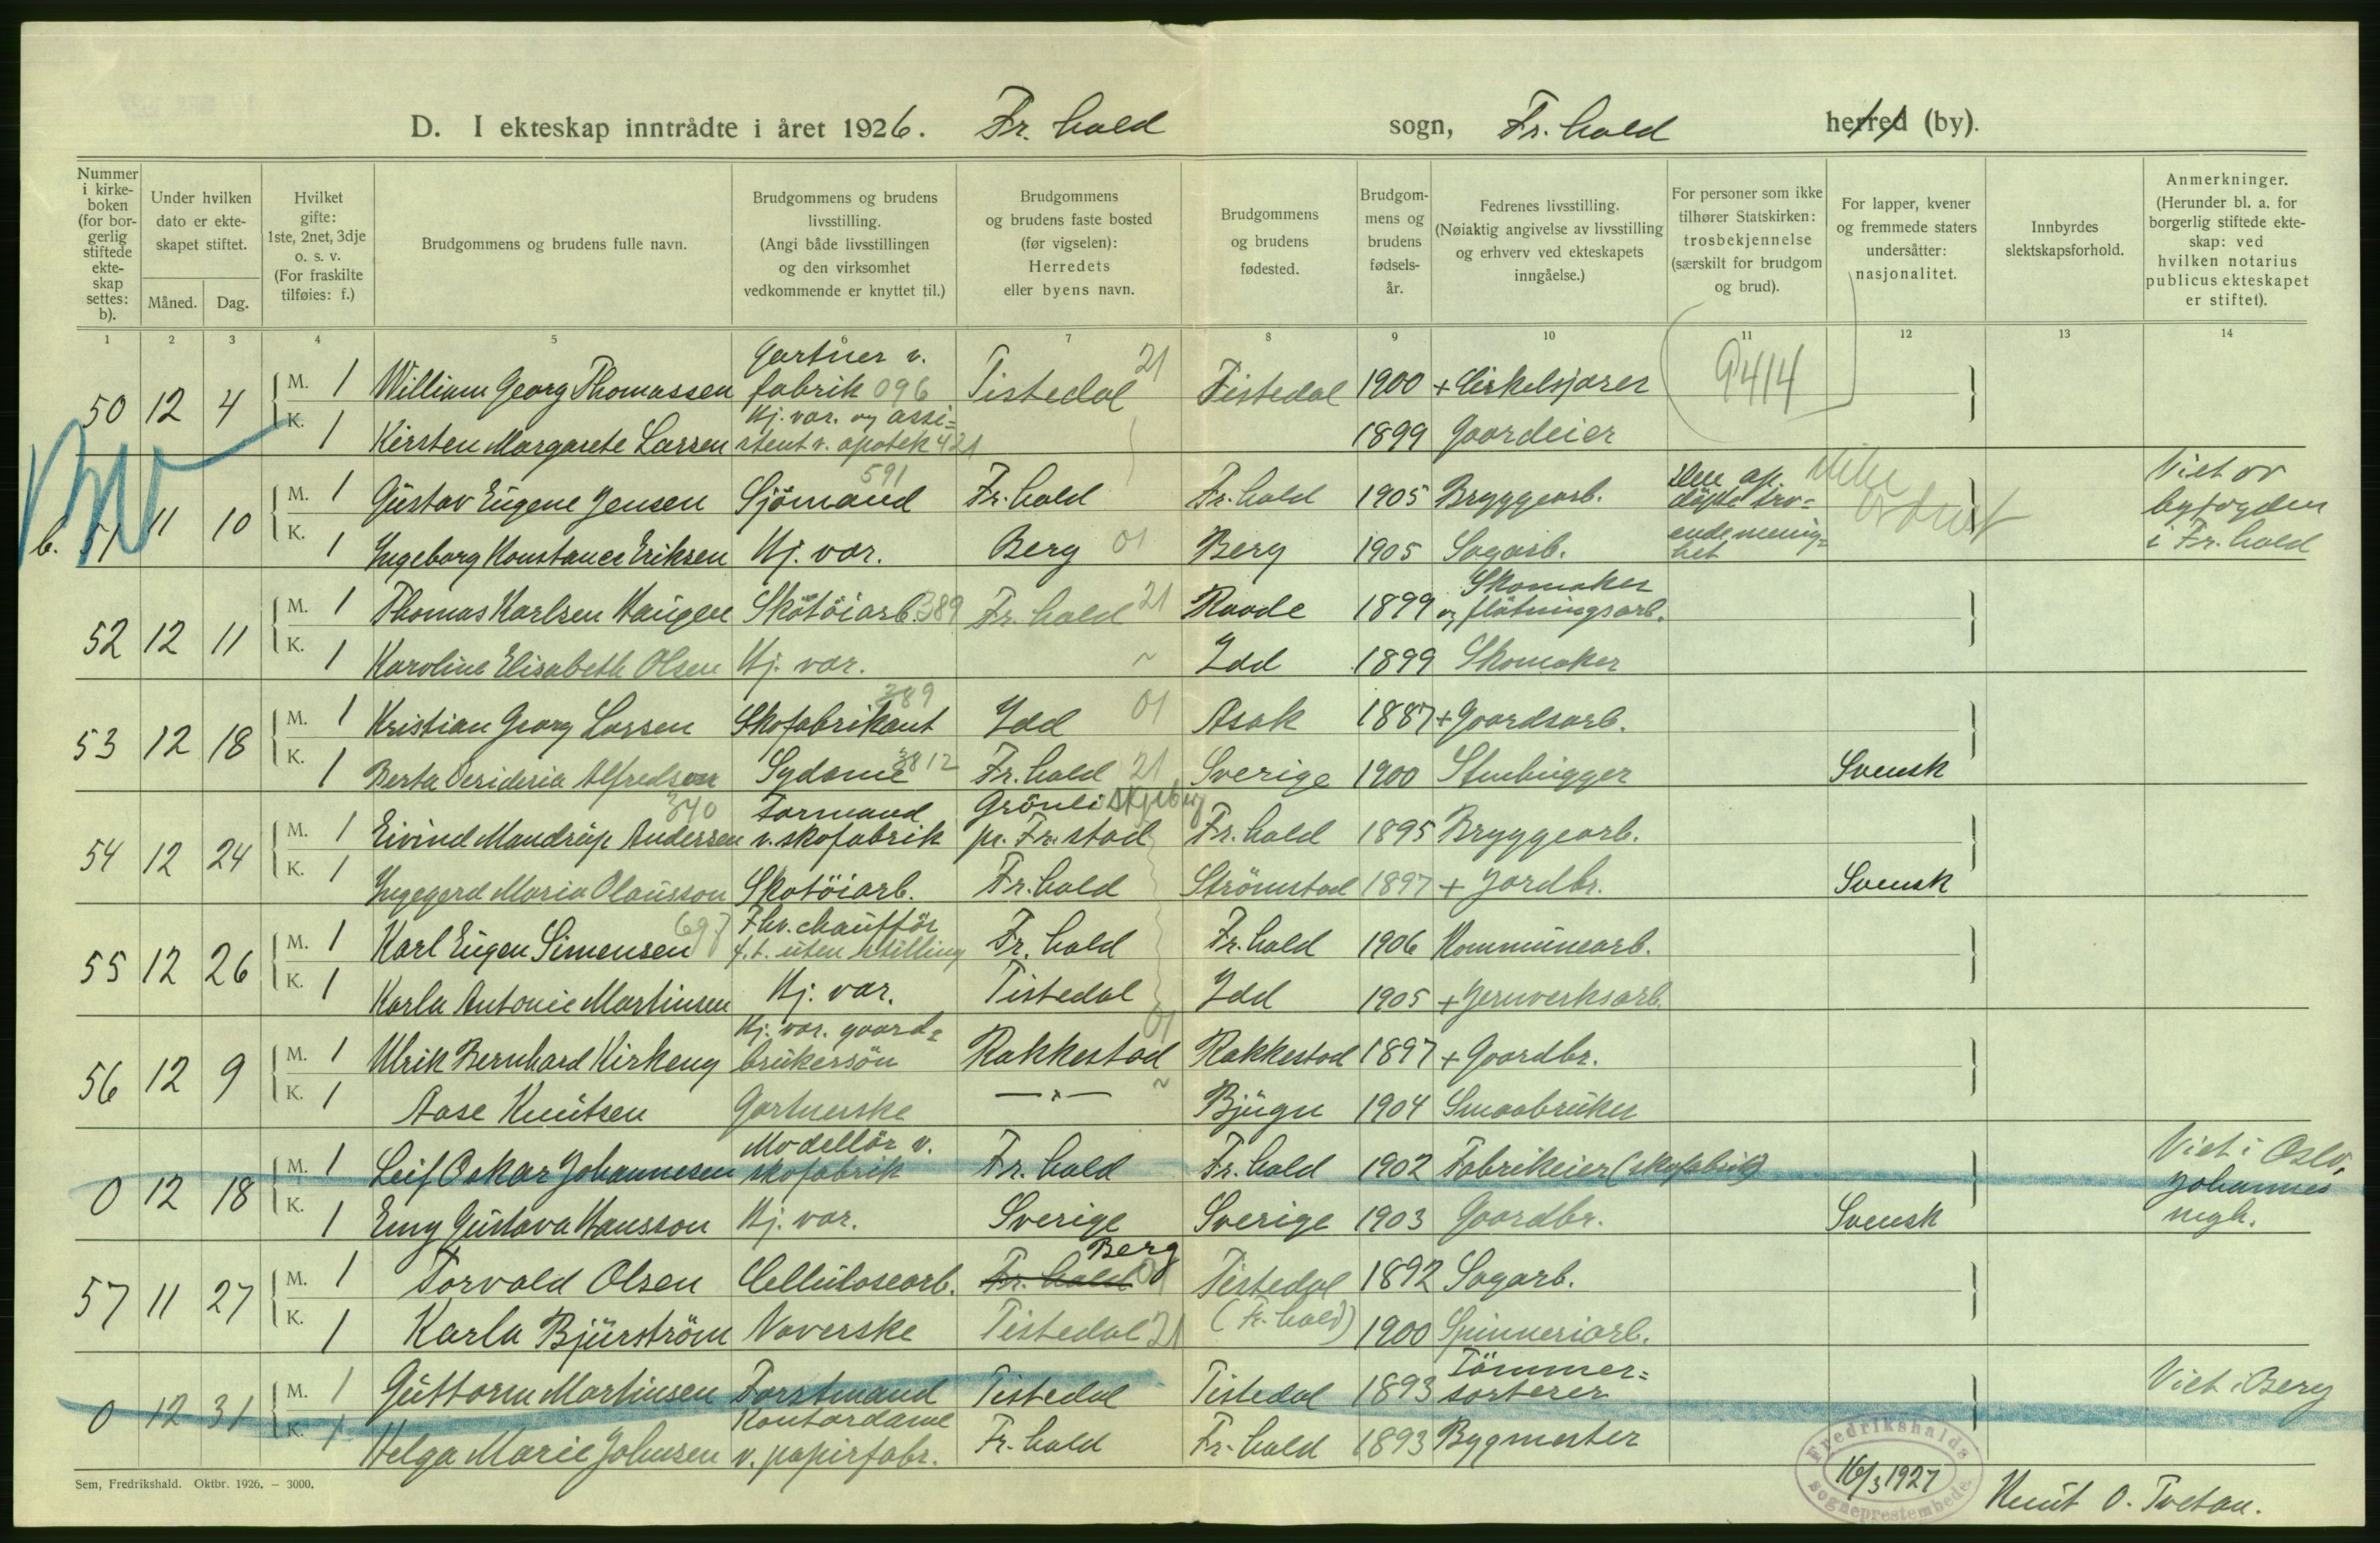 D. I ekteskap inntrådte i året 1926. Fr. hald sogn, Fr. hald herred (by).
Nummer i kirkeboken (for borgerlig stiftede ekteskap settes: b).
Under hvilken dato er ekteskapet stiftet.
Måned.
Dag.
Hvilket gifte: 1ste, 2net, 3dje o. s. v. (For fraskilte tilføies: f.)
Brudgommens og brudens fulle navn.
Brudgommens og brudens livsstilling. (Angi både livsstillingen og den virksomhet vedkommende er knyttet til.)
Brudgommens og brudens faste bosted (før vigselen): Herredets eller byens navn.
Brudgommens og brudens fødested.
Brudgommens og brudens fødselsår.
Fedrenes livsstilling. (Nøiaktig angivelse av livsstilling og erhverv ved ekteskapets inngåelse.)
For personer som ikke tilhører Statskirken: trosbekjennelse (særskilt for brudgom og brud).
For lapper, kvener og fremmede staters undersåtter: nasjonalitet.
Innbyrdes slektskapsforhold.
Anmerkninger. (Herunder bl. a. for borgerlig stiftede ekteskap: ved hvilken notarius publicus ekteskapet er stiftet).
1 2 3 4 5 6 7 8 9 10 11 12 13 14
50 12 4 M. 1 William Georg Thomassen Gartner v. fabrik 096 Tistedal 21 Tistedal 1900 + Cirkelsjærer 9414
K. 1 Kirsten Margarete Larsen Hj. vær. og assistent v. apotek 421 1899 Gaardeier
b. 51 11 10 M. 1 Gustav Eugene Jensen Sjömand 591 Fr. hald Fr. hald 1905 Bryggearb. Den ap. døpte troende menighet Viet av byfogden i Fr. hald
K. 1 Ingeborg Konstance Eriksen Hj. vær. Berg 01 Berg 1905 Sagarb.
52 12 11 M. 1 Thomas Karlsen Haugen Skötöiarb. 389 Fr. hald 21 Raade 1899 Skomaker og flötningsarb.
K. 1 Karoline Elisabeth Olsen Hj. vær. ~ Idd 1899 Skomaker
53 12 18 M. 1 Kristian Georg Larsen Skofabrikant 389 Idd 01 Asak 1887 + Gaardsarb.
K. 1 Berta Desideria Alfredson Sydame 3812 Fr. hald 21 Sverige 1900 Stenhugger Svensk
54 12 24 M. 1 Eivind Mandrup Andersen 340 Formand v. skofabrik Grönli Skjeberg pr. Fr. stad Fr. hald 1895 Bryggearb.
K. 1 Ingegerd Maria Olausson Skotöiarb. Fr. hald Strömstad 1897 + Jordbr. Svensk
55 12 26 M. 1 Karl Eugen Simensen 697 Fhv. chaufför f. t. uten stilling Fr. hald Fr. hald 1906 Kommunearb.
K. 1 Karla Antonie Martinsen Hj. vær. Tistedal Idd 1905 + Jernverksarb.
56 12 9 M. 1 Ulrik Bernhard Kirkeng Hj. vær. gaardbrukersön Rakkestad 01 Rakkestad 1897 + Gaardbr.
K. 1 Aase Knutsen Gartnerske —"— ~ Bjugn 1904 Smaabruker
0 12 18 M. 1 Leif Oskar Johannesen Modellör v. skofabrik Fr. hald Fr. hald 1902 Fabrikeier (skofabrik) Viet i Oslo, Johannes mgh.
K. 1 Emy Gustava Hansson Hj. vær. Sverige Sverige 1903 Gaardbr. Svensk
57 11 27 M. 1 Torvald Olsen Cellulosearb. Fr. hald Berg 01 Tistedal (Fr. hald) 1892 Sagarb.
K. 1 Karla Bjurström Væverske Tistedal 21 1900 Spinneriarb.
0 12 31 M. 1 Guttorm Martinsen Forstmand Tistedal Tistedal 1893 Tömmersorterer Viet i Berg
K. 1 Helga Marie Johnsen Kontordame v. papirfabr. Fr. hald Fr. hald 1893 Bygmester
Sem, Fredrikshald. Oktbr. 1926. – 3000.
Fredrikshalds sogneprestembede
16/3 1927
Knut O. Tvetan.